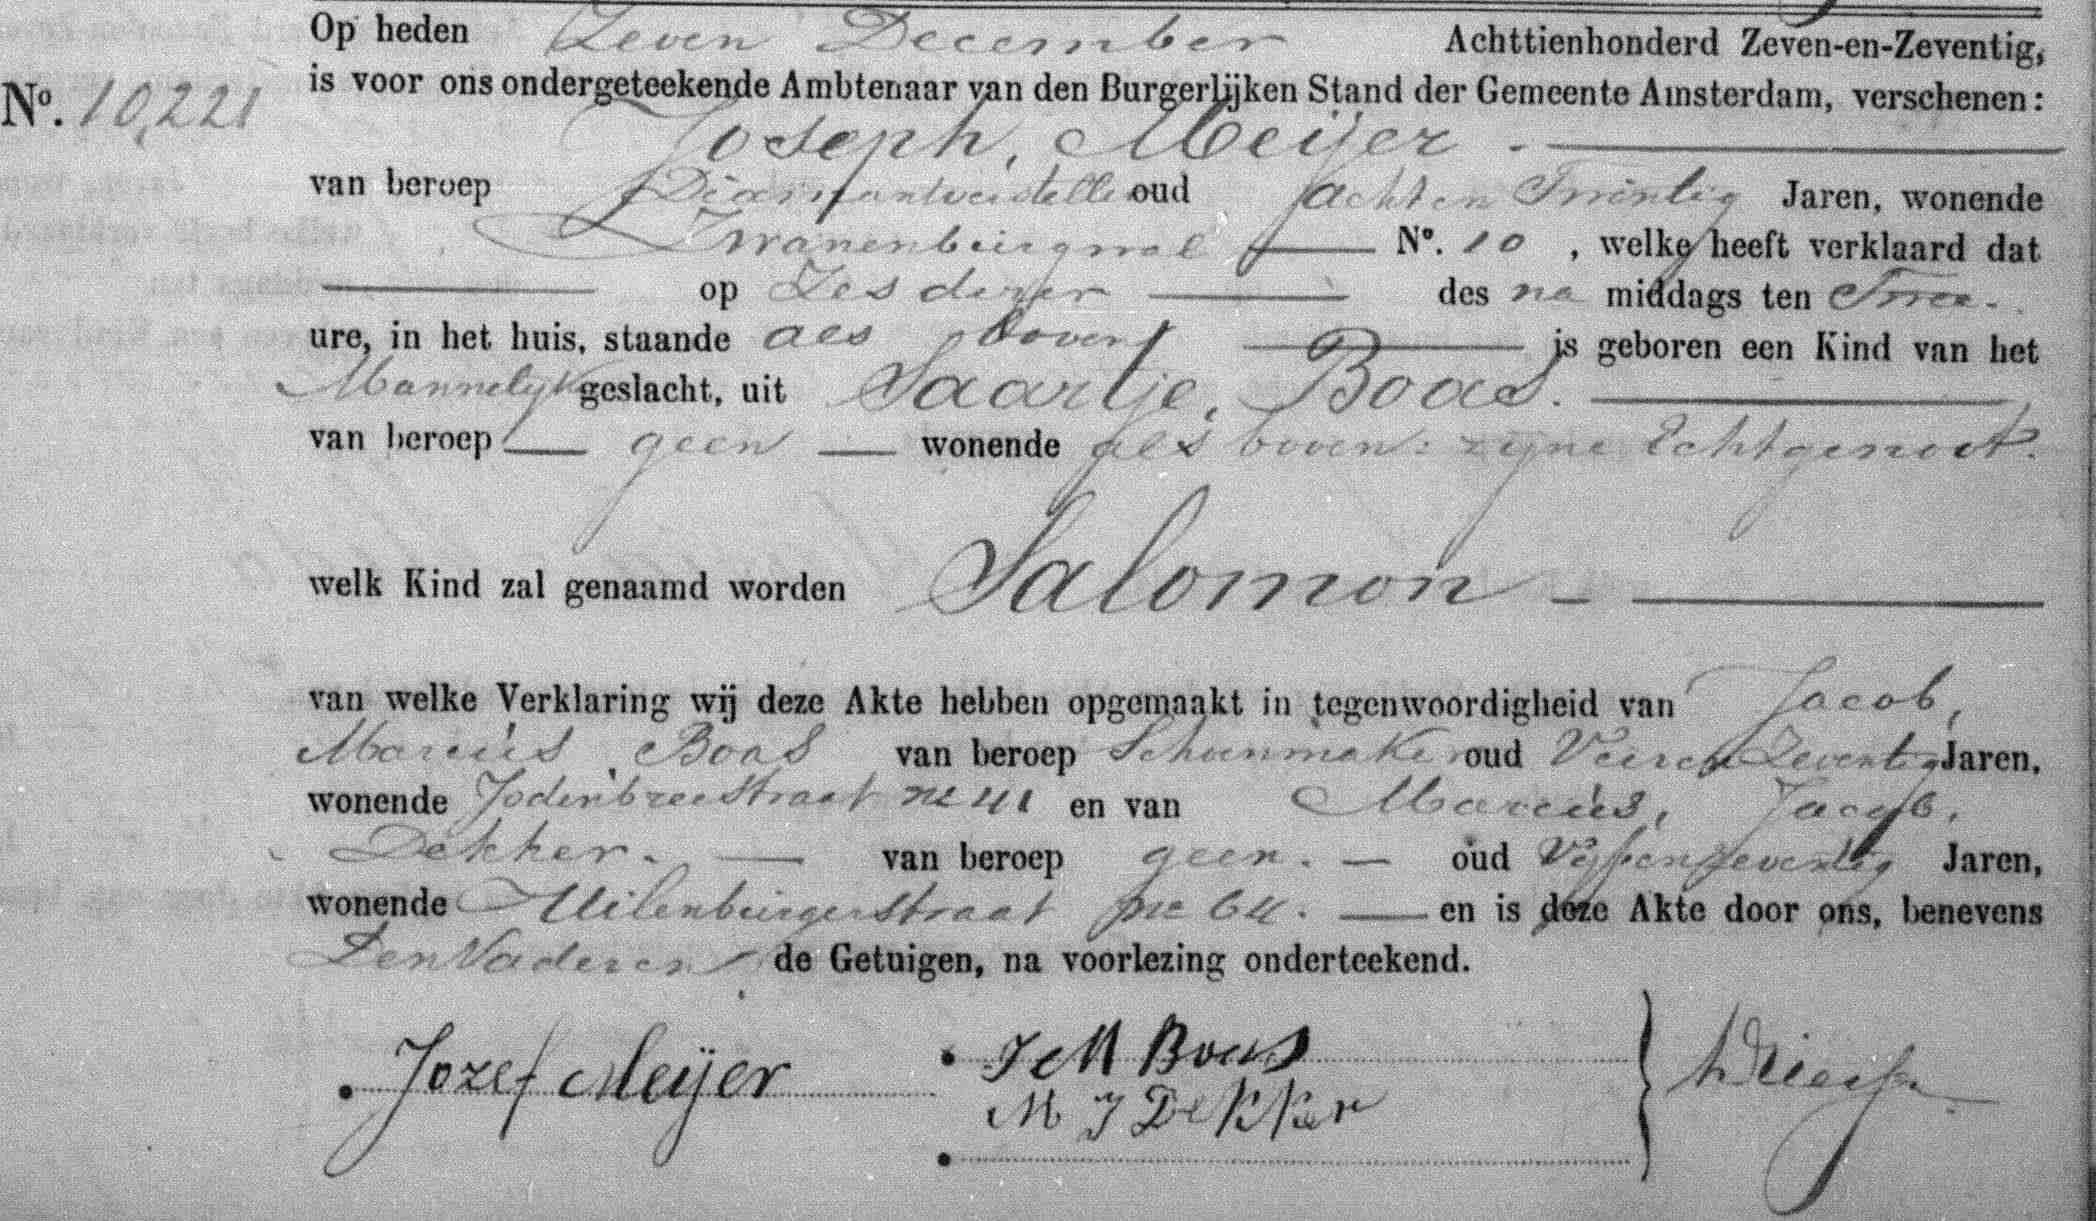 Op heden Zeven December Achttienhonderd Zeven-en-Zeventig,
is voor ons ondergeteekende Ambtenaar van den Burgerlijken Stand der Gemeente Amsterdam, verschenen:
No. 10,221
Joseph, Meijer.
van beroep Diamantversteller oud achten Twintig Jaren, wonende
Zwanenburgwal No. 10, welke heeft verklaard dat
op Zes dezer des na middags ten Twee.
ure, in het huis, staande als boven is geboren een Kind van het
Mannelijk geslacht, uit Saartje, Boas.
van beroep geen wonende als boven: zijne Echtgenoot.
welk Kind zal genaamd worden Salomon
van welke Verklaring wij deze Akte hebben opgemaakt in tegenwoordigheid van Jacob,
Marcus, Boas van beroep Schoenmaker oud Vieren Zeventig Jaren,
wonende Jodenbreestraat no 41 en van Marcus, Jacob,
Dekker. van beroep geen. oud Vijfenzeventig Jaren,
wonende Uilenburgerstraat no 64. en is deze Akte door ons, benevens
Den Vader en de Getuigen, na voorlezing onderteekend.
Jozef Meijer
J M Boas
M J Dekker